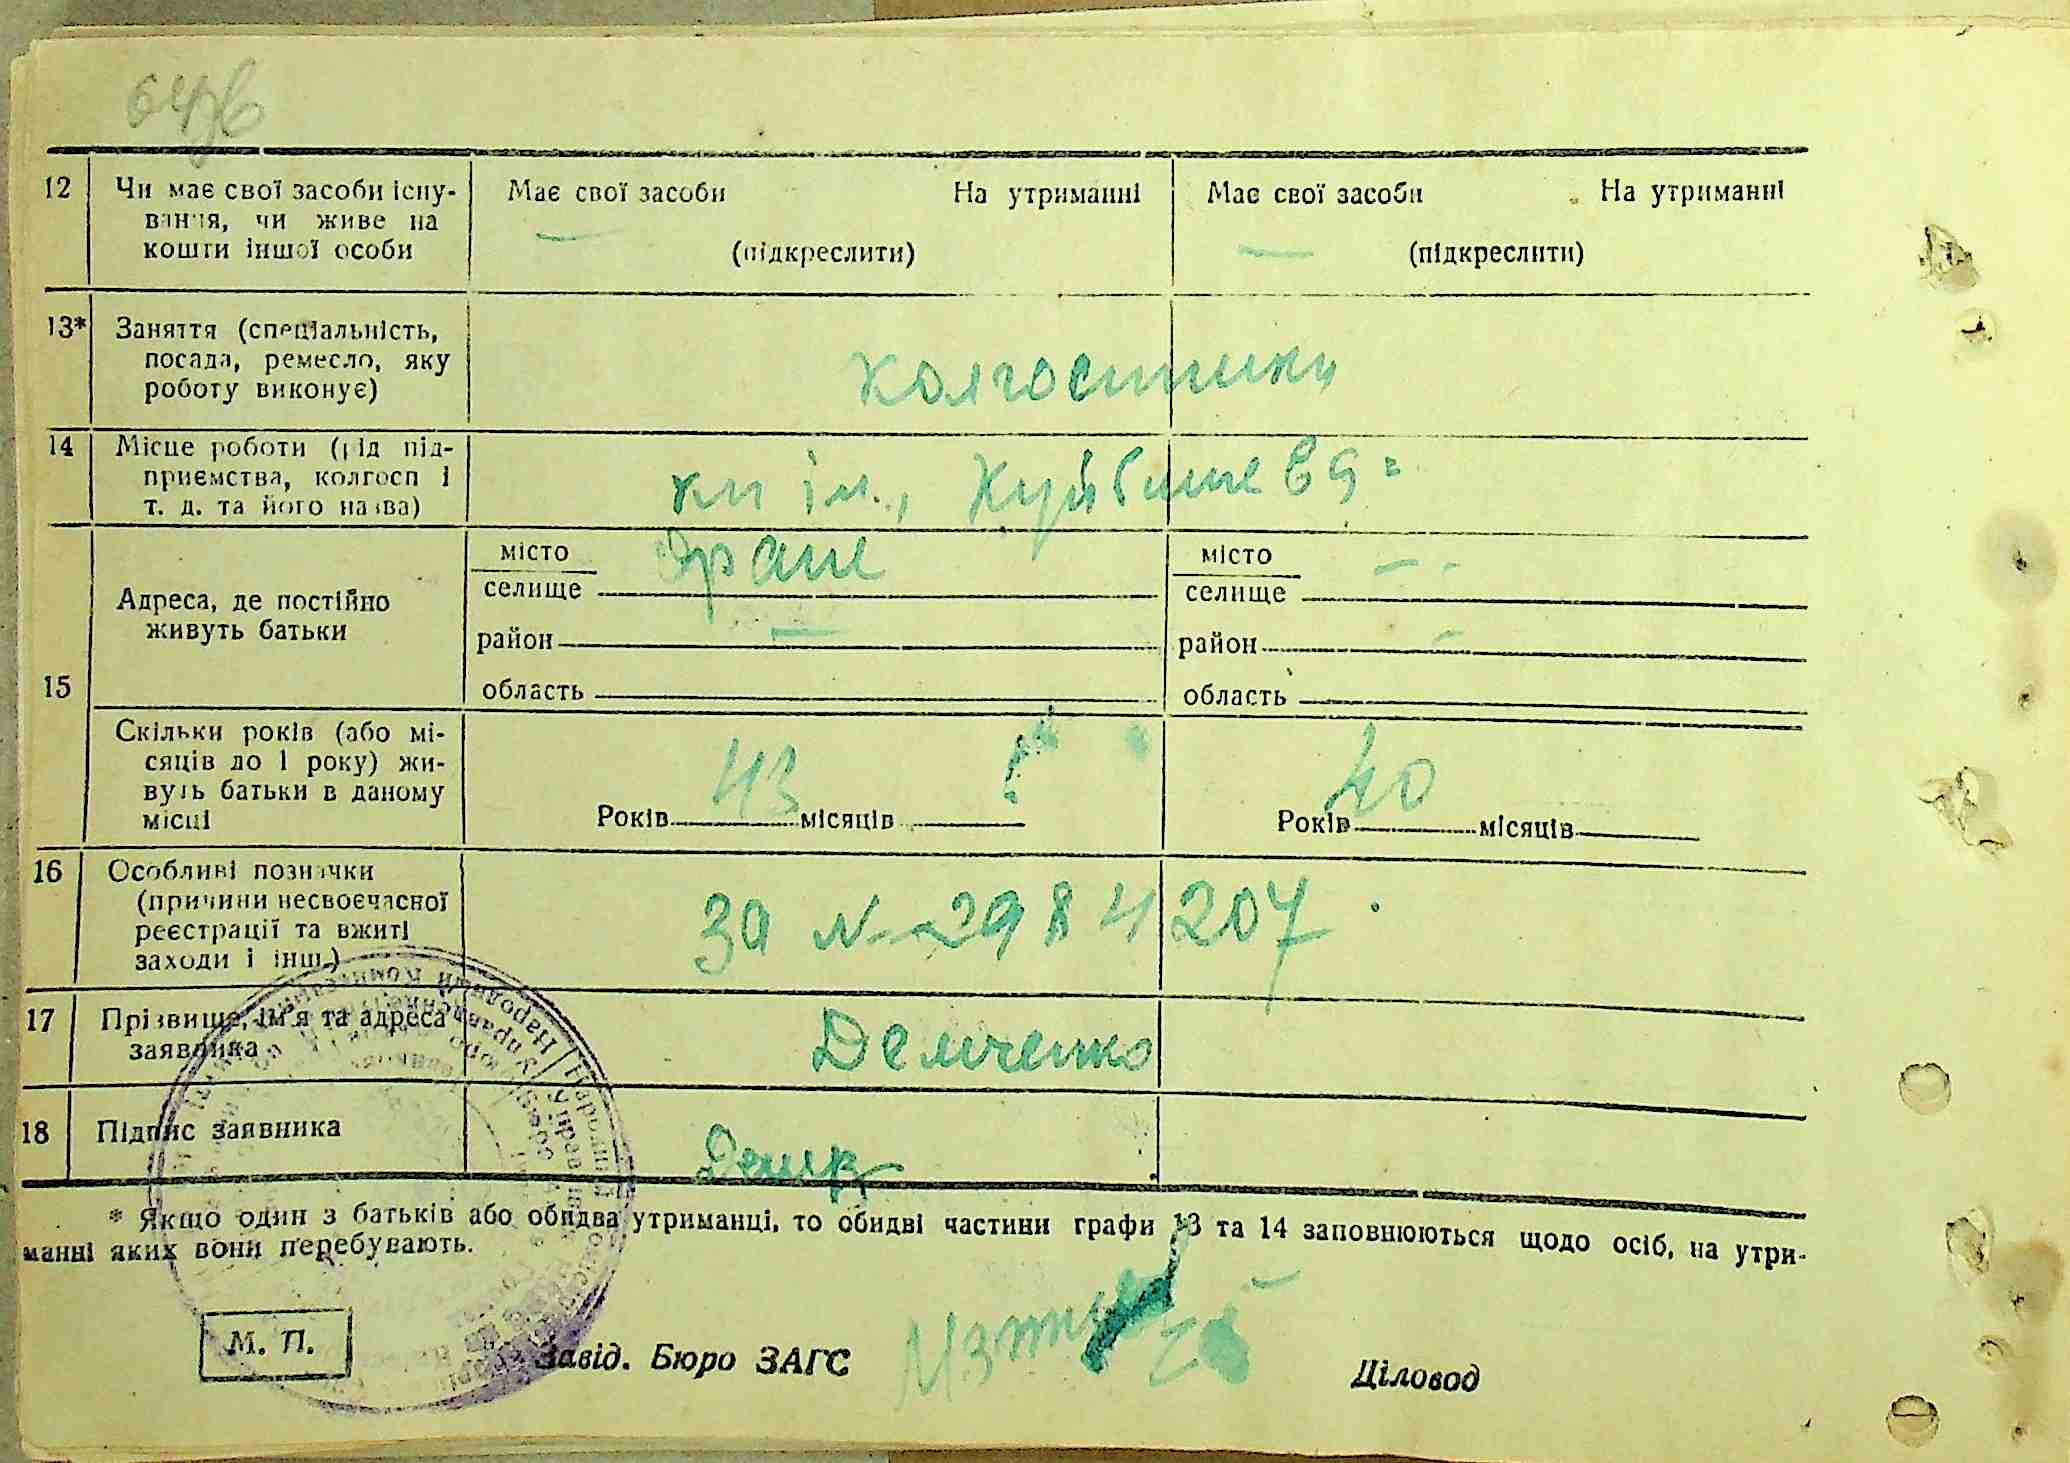 12 Чи має свої засоби існу-
вання, чи живе на
кошти іншої особи
Має свої засоби На утриманні
(підкреслити)
Має свої засоби На утриманні
(підкреслити)
13* Заняття (спеціальність,
посада, ремесло, яку
роботу виконує)
колгоспники
14 Місце роботи (рід під-
приємства, колгосп і
т. д. та його назва)
кп ім., Куйбишева
15 Адреса, де постійно
живуть батьки
місто
селище
район
область
місто
селище
район
область
Скільки років (або мі-
сяців до 1 року) жи-
вуть батьки в даному
місці
Років 43 місяців
Років 40 місяців
16 Особливі позначки
(причини несвоєчасної
реєстрації та вжиті
заходи і інш.)
за № 2984207
17 Прізвище, ім'я та адреса
заявника
Демченко
18 Підпис заявника
* Якщо один з батьків або обидва утриманці, то обидві частини графи 13 та 14 заповнюються щодо осіб, на утри-
манні яких вони перебувають.
М. П.
Завід. Бюро ЗАГС
Діловод